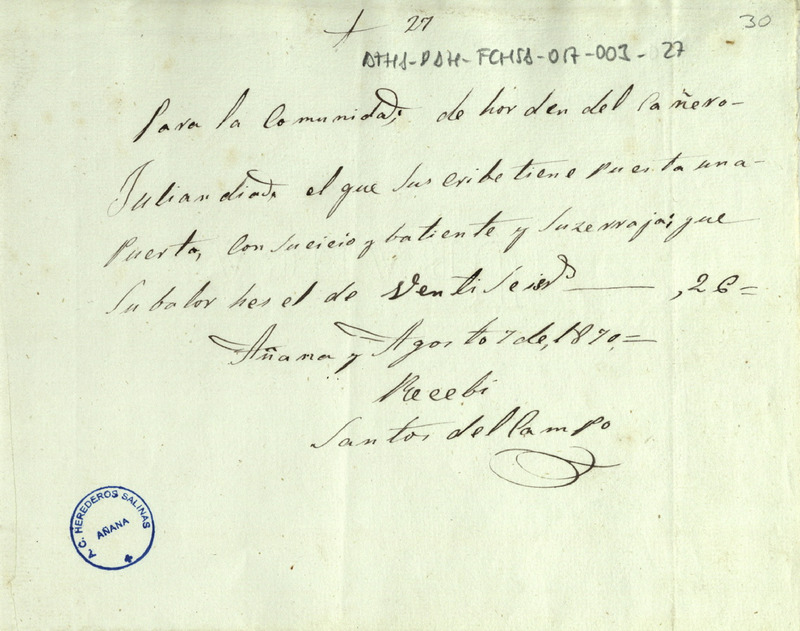 27
30
ATHA-DAH-FCHSA-017-003-27
Para la Comunidad, de hórden del Cañero-
Julian diad, el que Suscribe tiene puesta una-
puerta, Con su cicio y batiente y suzerraja; que
Su balor hes el de Venti Séis rs ——— ,26=
Añana y Agosto 7 de, 1870,=
Recebi
Santos del Campo
A.C. HEREDEROS SALINAS
AÑANA